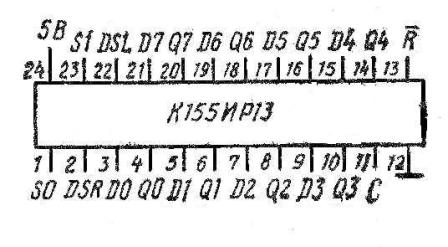 5В
S1 DSL D7 Q7 D6 Q6 D5 Q5 D4 Q4 R̅
24 23 22 21 20 19 18 17 16 15 14 13
К155ИР13
1 2 3 4 5 6 7 8 9 10 11 12
S0 DSR D0 Q0 D1 Q1 D2 Q2 D3 Q3 C